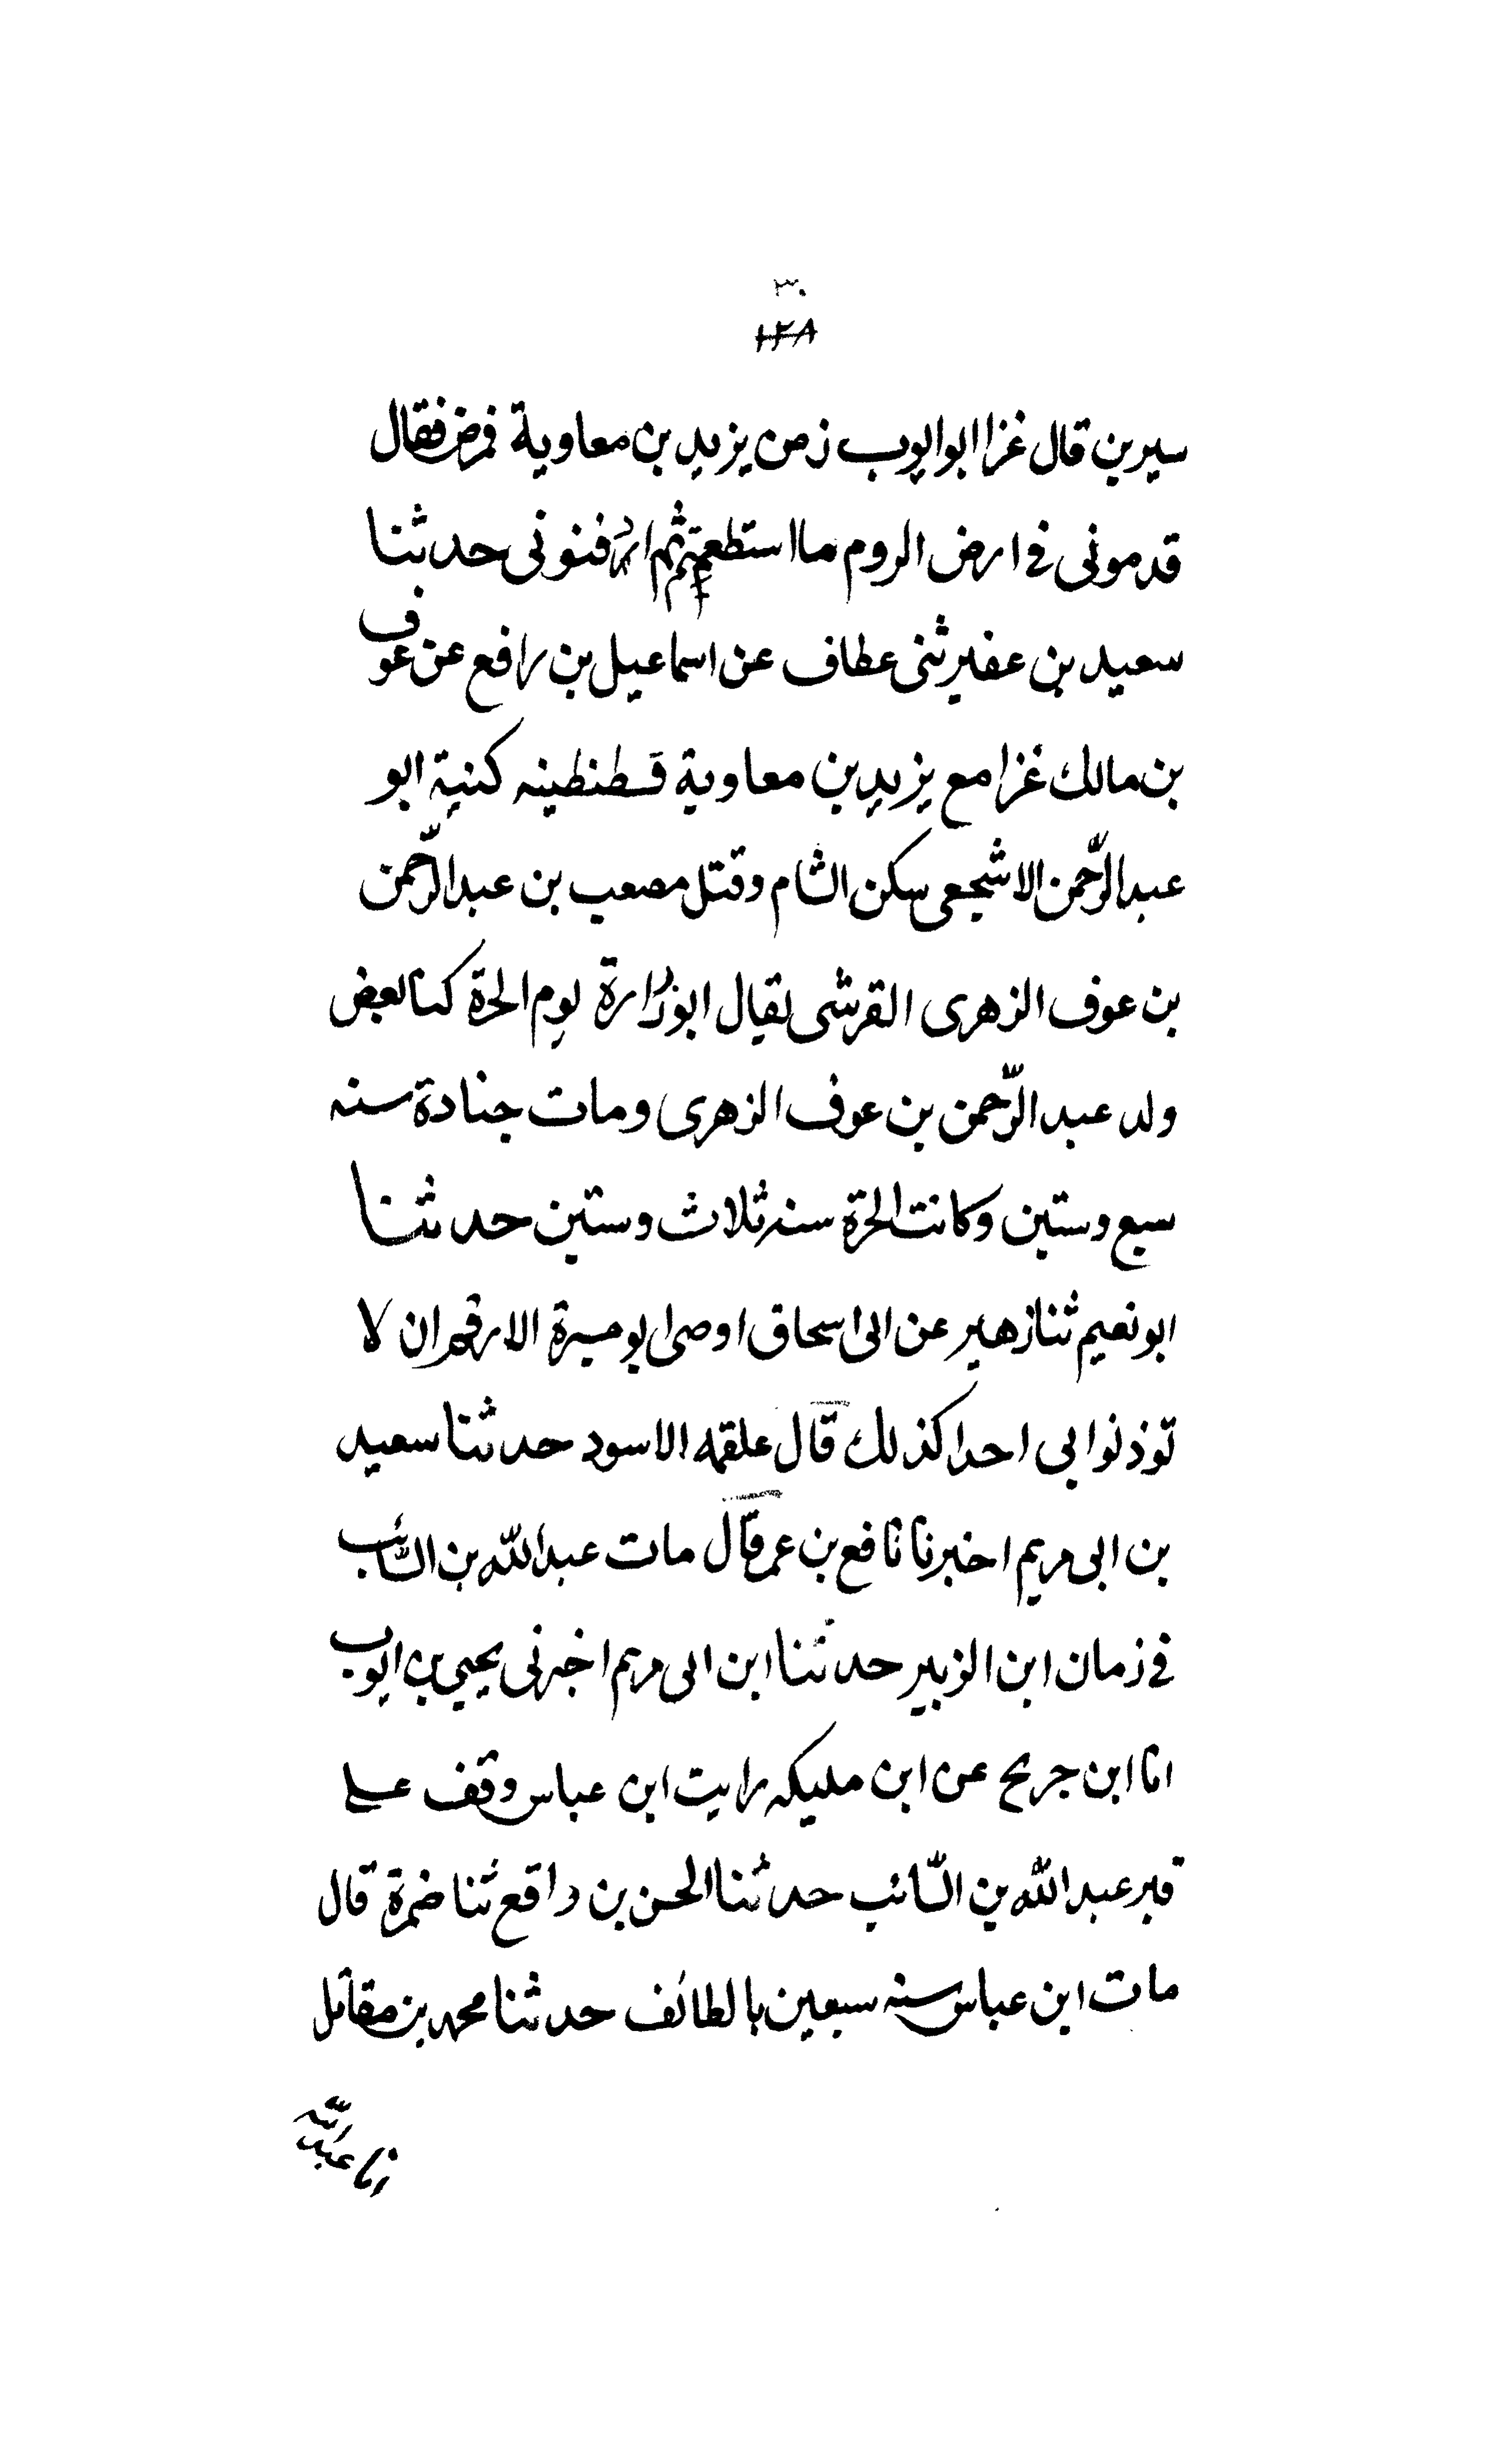 ٣٠
١٢٨
سيرين قال غزا ابو ايوب زمن يزيد بن معاوية فمرض فقال
قدمونى فى ارض الروم ما استطعتم ثم ادفنونى حدثنا
سعيد بن عفير ثنى عطاف عن اسماعيل بن رافع عن عوف
بن مالك غزا مع يزيد بن معاوية قسطنطينه كنية ابو
عبد الرّحمن الاشجعى سكن الشام وقتل مصعب بن عبد الرّحمن
بن عوف الزهرى القرشى يقال ابو زرارة يوم الحرة كناه بعض
ولد عبد الرّحمن بن عوف الزهرى ومات جنادة سنه
سبع وستين وكانت الحرة سنه ثلاث وستين حدثنا
ابو نعيم ثنا زهير عن ابى اسحاق اوصى ابو ميسرة الارقم ان لا
توذنوا بى احدا كذلك قال علقمه الاسود حدثنا سعيد
بن ابى مريم اخبرنا نافع بن عمر قال مات عبد اللّه بن السّائب
فى زمان ابن الزبير حدثنا ابن ابى مريم اخبرنى يحيى بن ايوب
انا ابن جريج عن ابن مليكه رايت ابن عباس وقف على
قبر عبد اللّه بن السّائب حدثنا الحسن بن واقع ثنا ضمرة قال
مات ابن عباس سنه سبعين بالطائف حدثنا محمد بن مقاتل
انا عبد اللّه